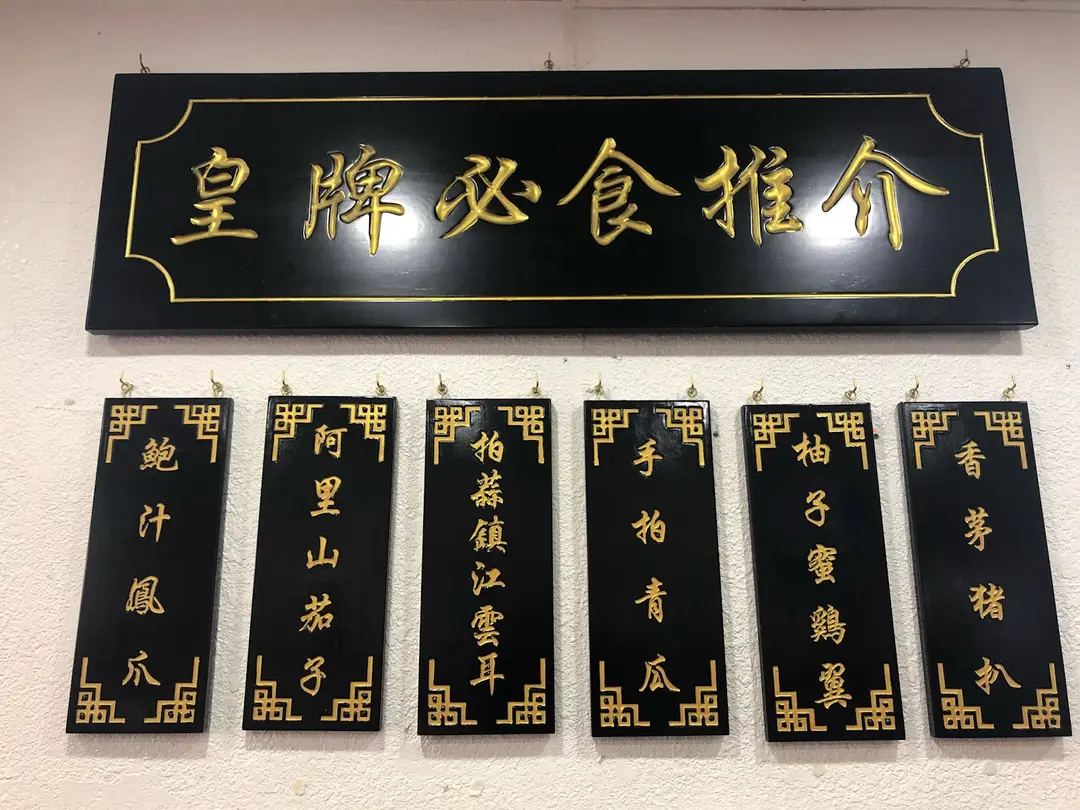 皇牌必食推介
鮑汁鳳爪
阿里山茄子
拍蒜鎮江雲耳
手拍青瓜
柚子蜜鷄翼
香茅猪扒